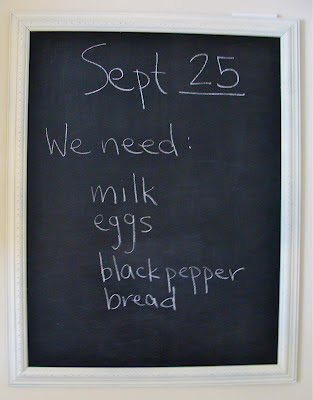 Sept 25
We need:
milk
eggs
black pepper
bread